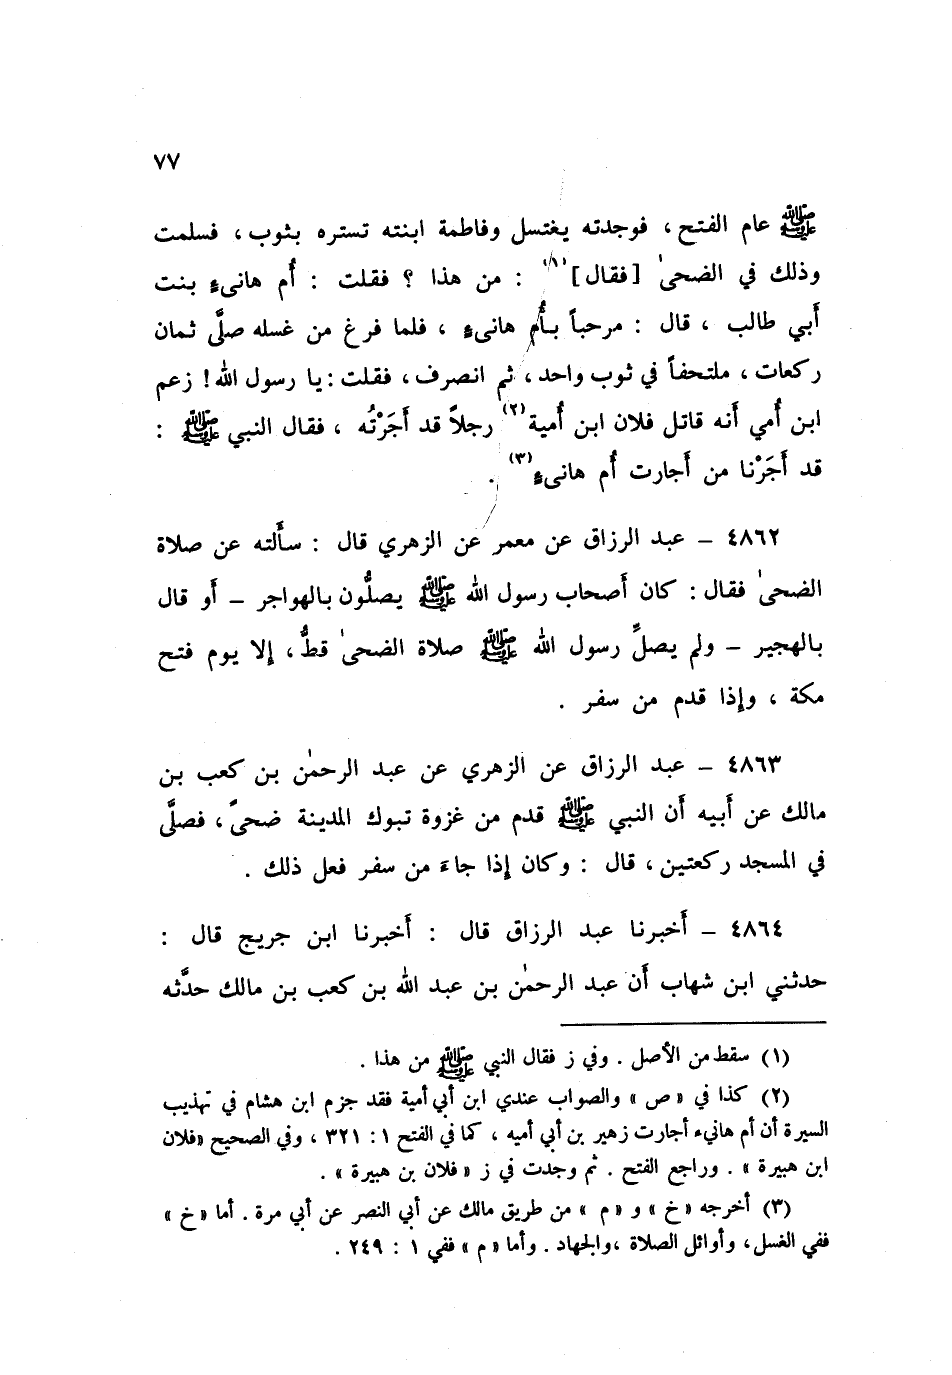 ٧٧
ﷺ عام الفتح ، فوجدته يغتسل وفاطمة ابنته تستره بثوب ، فسلمت
وذلك في الضحىٰ [فقال](١) : من هذا ؟ فقلت : أُم هانىءٍ بنت
أَبي طالب ، قال : مرحباً بأُم هانىءٍ ، فلما فرغ من غسله صلَّى ثمان
ركعات ، ملتحفاً في ثوب واحد ، ثم انصرف ، فقلت : يا رسول الله ! زعم
ابن أُمي أَنه قاتل فلان ابن أُمية(٢) رجلاً قد أَجَرْتُه ، فقال النبي ﷺ :
قد أَجَرْنا من أَجارت أُم هانىءٍ(٣) .
٤٨٦٢ – عبد الرزاق عن معمر عن الزهري قال : سأَلته عن صلاة
الضحىٰ فقال : كان أَصحاب رسول الله ﷺ يصلُّون بالهواجر – أَو قال
بالهجير – ولم يصلِّ رسول الله ﷺ صلاة الضحىٰ قطُّ ، إلا يوم فتح
مكة ، وإذا قدم من سفر .
٤٨٦٣ – عبد الرزاق عن الزهري عن عبد الرحمٰن بن كعب بن
مالك عن أَبيه أَن النبي ﷺ قدم من غزوة تبوك المدينة ضحىً ، فصلَّى
في المسجد ركعتين ، قال : وكان إذا جاءَ من سفر فعل ذلك .
٤٨٦٤ – أَخبرنا عبد الرزاق قال : أَخبرنا ابن جريج قال :
حدثني ابن شهاب أَن عبد الرحمٰن بن عبد الله بن كعب بن مالك حدَّثه
(١) سقط من الأصل . وفي ز فقال النبي ﷺ من هذا .
(٢) كذا في « ص » والصواب عندي ابن أبي أمية فقد جزم ابن هشام في تهذيب
السيرة أن أم هانيء أجارت زهير بن أبي أميه ، كما في الفتح ١ : ٣٢١ ، وفي الصحيح «فلان
ابن هبيرة » . وراجع الفتح . ثم وجدت في ز « فلان بن هبيرة » .
(٣) أخرجه « خ » و « م » من طريق مالك عن أبي النصر عن أبي مرة . أما « خ »
ففي الغسل ، وأوائل الصلاة ،والجهاد . وأما « م » ففي ١ : ٢٤٩ .